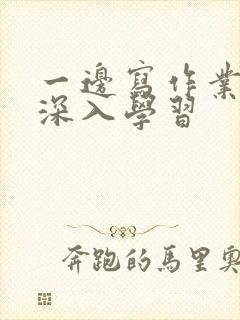 一邊寫作業
深入學習
奔跑的馬里奧